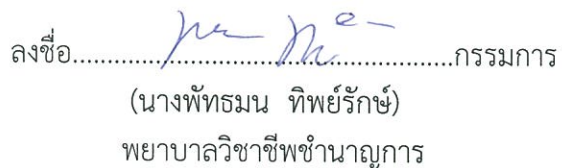 ลงชื่อ......................................................กรรมการ
(นางพัทธมน ทิพย์รักษ์)
พยาบาลวิชาชีพชำนาญการ